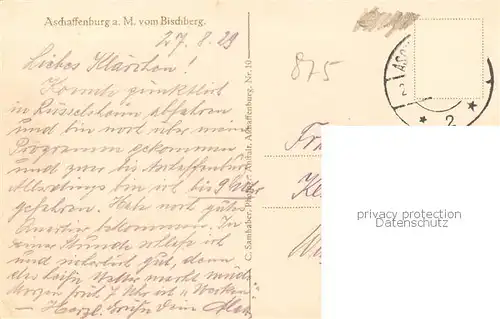 Aschaffenburg a. M. vom Bischberg.
27.8.29
875
Liebes Klärchen!
Konnte pünktlich
in Rüsselsheim abfahren
und bin noch über mein
Programm gekommen
und zwar bis Aschaffenburg
Allerdings bin ich bis 9 Uhr
gefahren. Habe noch gutes
Quartier bekommen. In
einer Stunde schlafe ich
und sicherlich gut, denn
das heiße Wetter macht müde
Morgen früh 7 Uhr ist "Wecken"
— Herzl. Grüße Dein
C. Samhaber, Photogr. Anstalt, Aschaffenburg. Nr. 10
* 2 *
privacy protection
Datenschutz